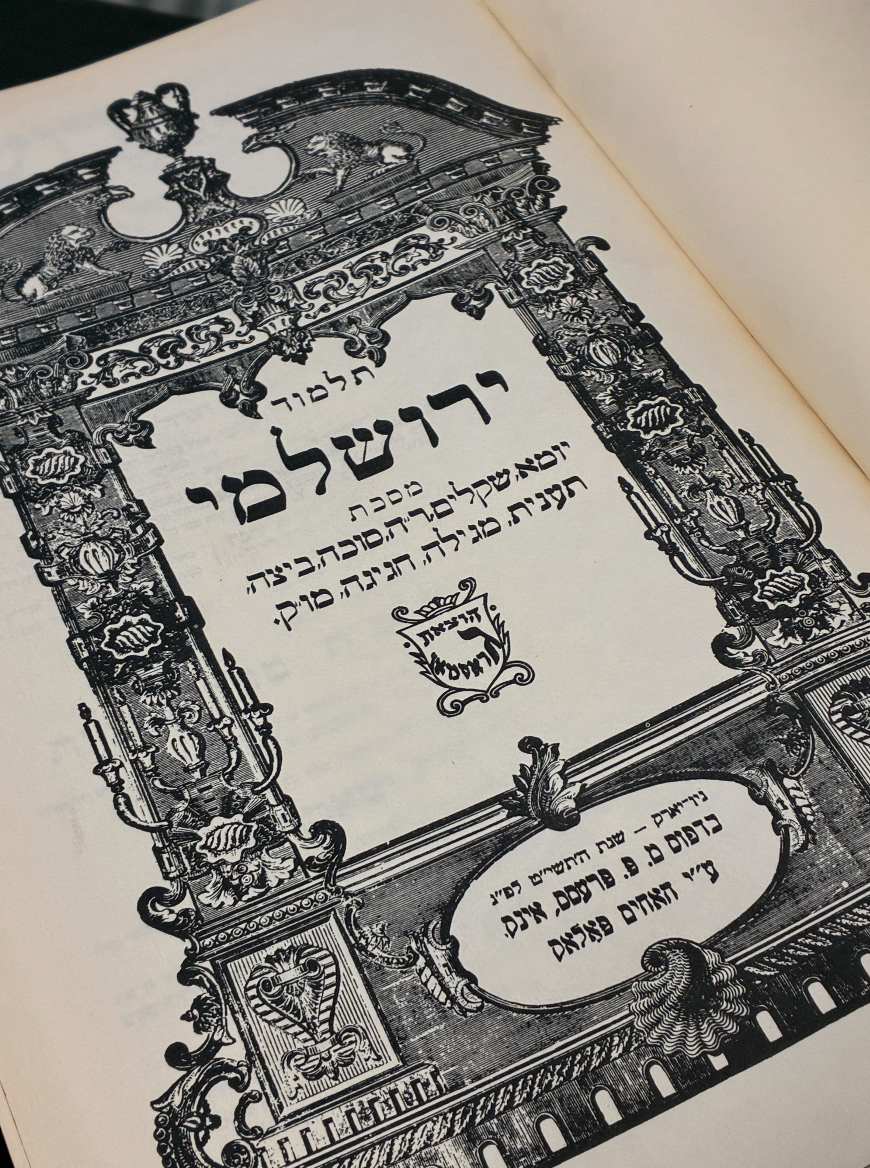 תלמוד
ירושלמי
מסכת
יומא, שקלים, ר״ה, סוכה, ביצה,
תענית, מגילה, חגיגה, מו״ק.
הוצאת
ניו־יארק — שנת ה׳תשי״ט לפ״ג
בדפוס מ. פ. פרעסס, אינק.
ע״י האחים פאלאק